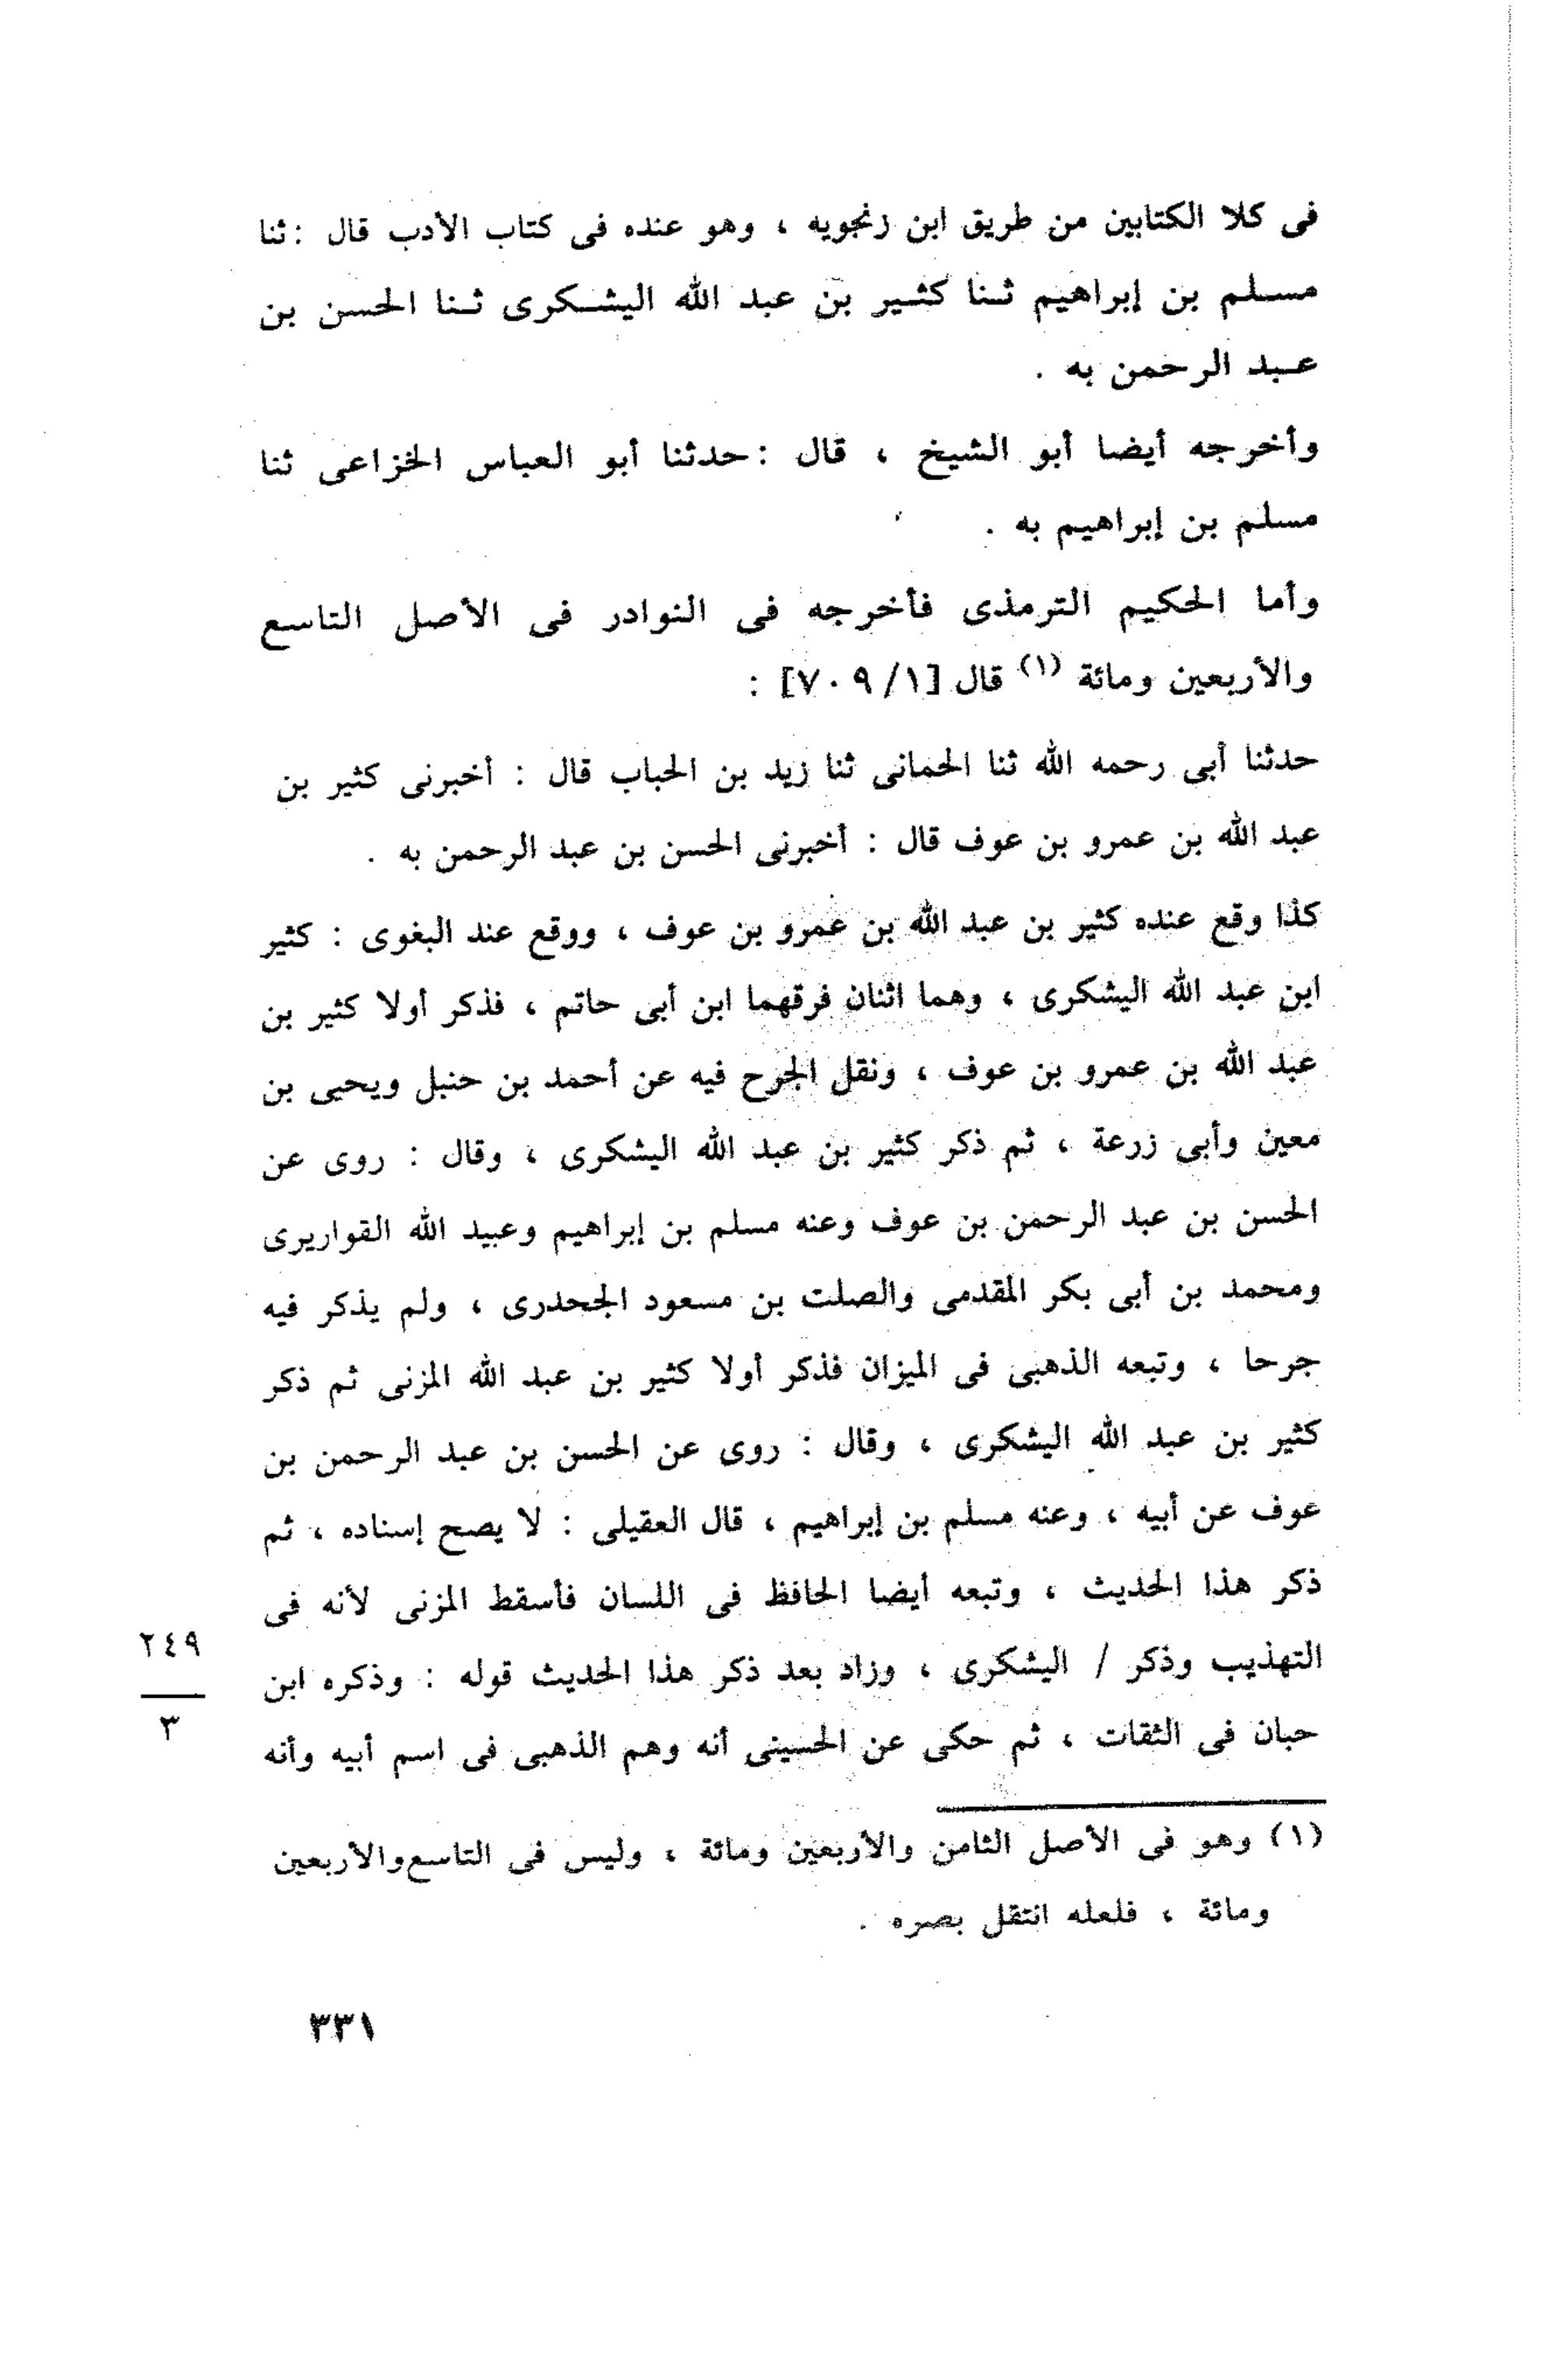 فى كلا الكتابين من طريق ابن زنجويه ، وهو عنده فى كتاب الأدب قال : ثنا
مسلم بن إبراهيم ثنا كثير بن عبد الله اليشكرى ثنا الحسن بن
عبد الرحمن به .
وأخرجه أيضا أبو الشيخ ، قال : حدثنا أبو العباس الخزاعى ثنا
مسلم بن إبراهيم به .
وأما الحكيم الترمذى فأخرجه فى النوادر فى الأصل التاسع
والأربعين ومائة (١) قال [١/ ٧٠٩] :
حدثنا أبى رحمه الله ثنا الحمانى ثنا زيد بن الحباب قال : أخبرنى كثير بن
عبد الله بن عمرو بن عوف قال : أخبرنى الحسن بن عبد الرحمن به .
كذا وقع عنده كثير بن عبد الله بن عمرو بن عوف ، ووقع عند البغوى : كثير
ابن عبد الله اليشكرى ، وهما اثنان فرقهما ابن أبى حاتم ، فذكر أولا كثير بن
عبد الله بن عمرو بن عوف ، ونقل الجرح فيه عن أحمد بن حنبل ويحيى بن
معين وأبى زرعة ، ثم ذكر كثير بن عبد الله اليشكرى ، وقال : روى عن
الحسن بن عبد الرحمن بن عوف وعنه مسلم بن إبراهيم وعبيد الله القواريرى
ومحمد بن أبى بكر المقدمى والصلت بن مسعود الجحدرى ، ولم يذكر فيه
جرحا ، وتبعه الذهبى فى الميزان فذكر أولا كثير بن عبد الله المزنى ثم ذكر
كثير بن عبد الله اليشكرى ، وقال : روى عن الحسن بن عبد الرحمن بن
عوف عن أبيه ، وعنه مسلم بن إبراهيم ، قال العقيلى : لا يصح إسناده ، ثم
ذكر هذا الحديث ، وتبعه أيضا الحافظ فى اللسان فأسقط المزنى لأنه فى
التهذيب وذكر / اليشكرى ، وزاد بعد ذكر هذا الحديث قوله : وذكره ابن
حبان فى الثقات ، ثم حكى عن الحسينى أنه وهم الذهبى فى اسم أبيه وأنه
٢٤٩
٣
(١) وهو فى الأصل الثامن والأربعين ومائة ، وليس فى التاسع والأربعين
ومائة ، فلعله انتقل بصره .
٣٣١